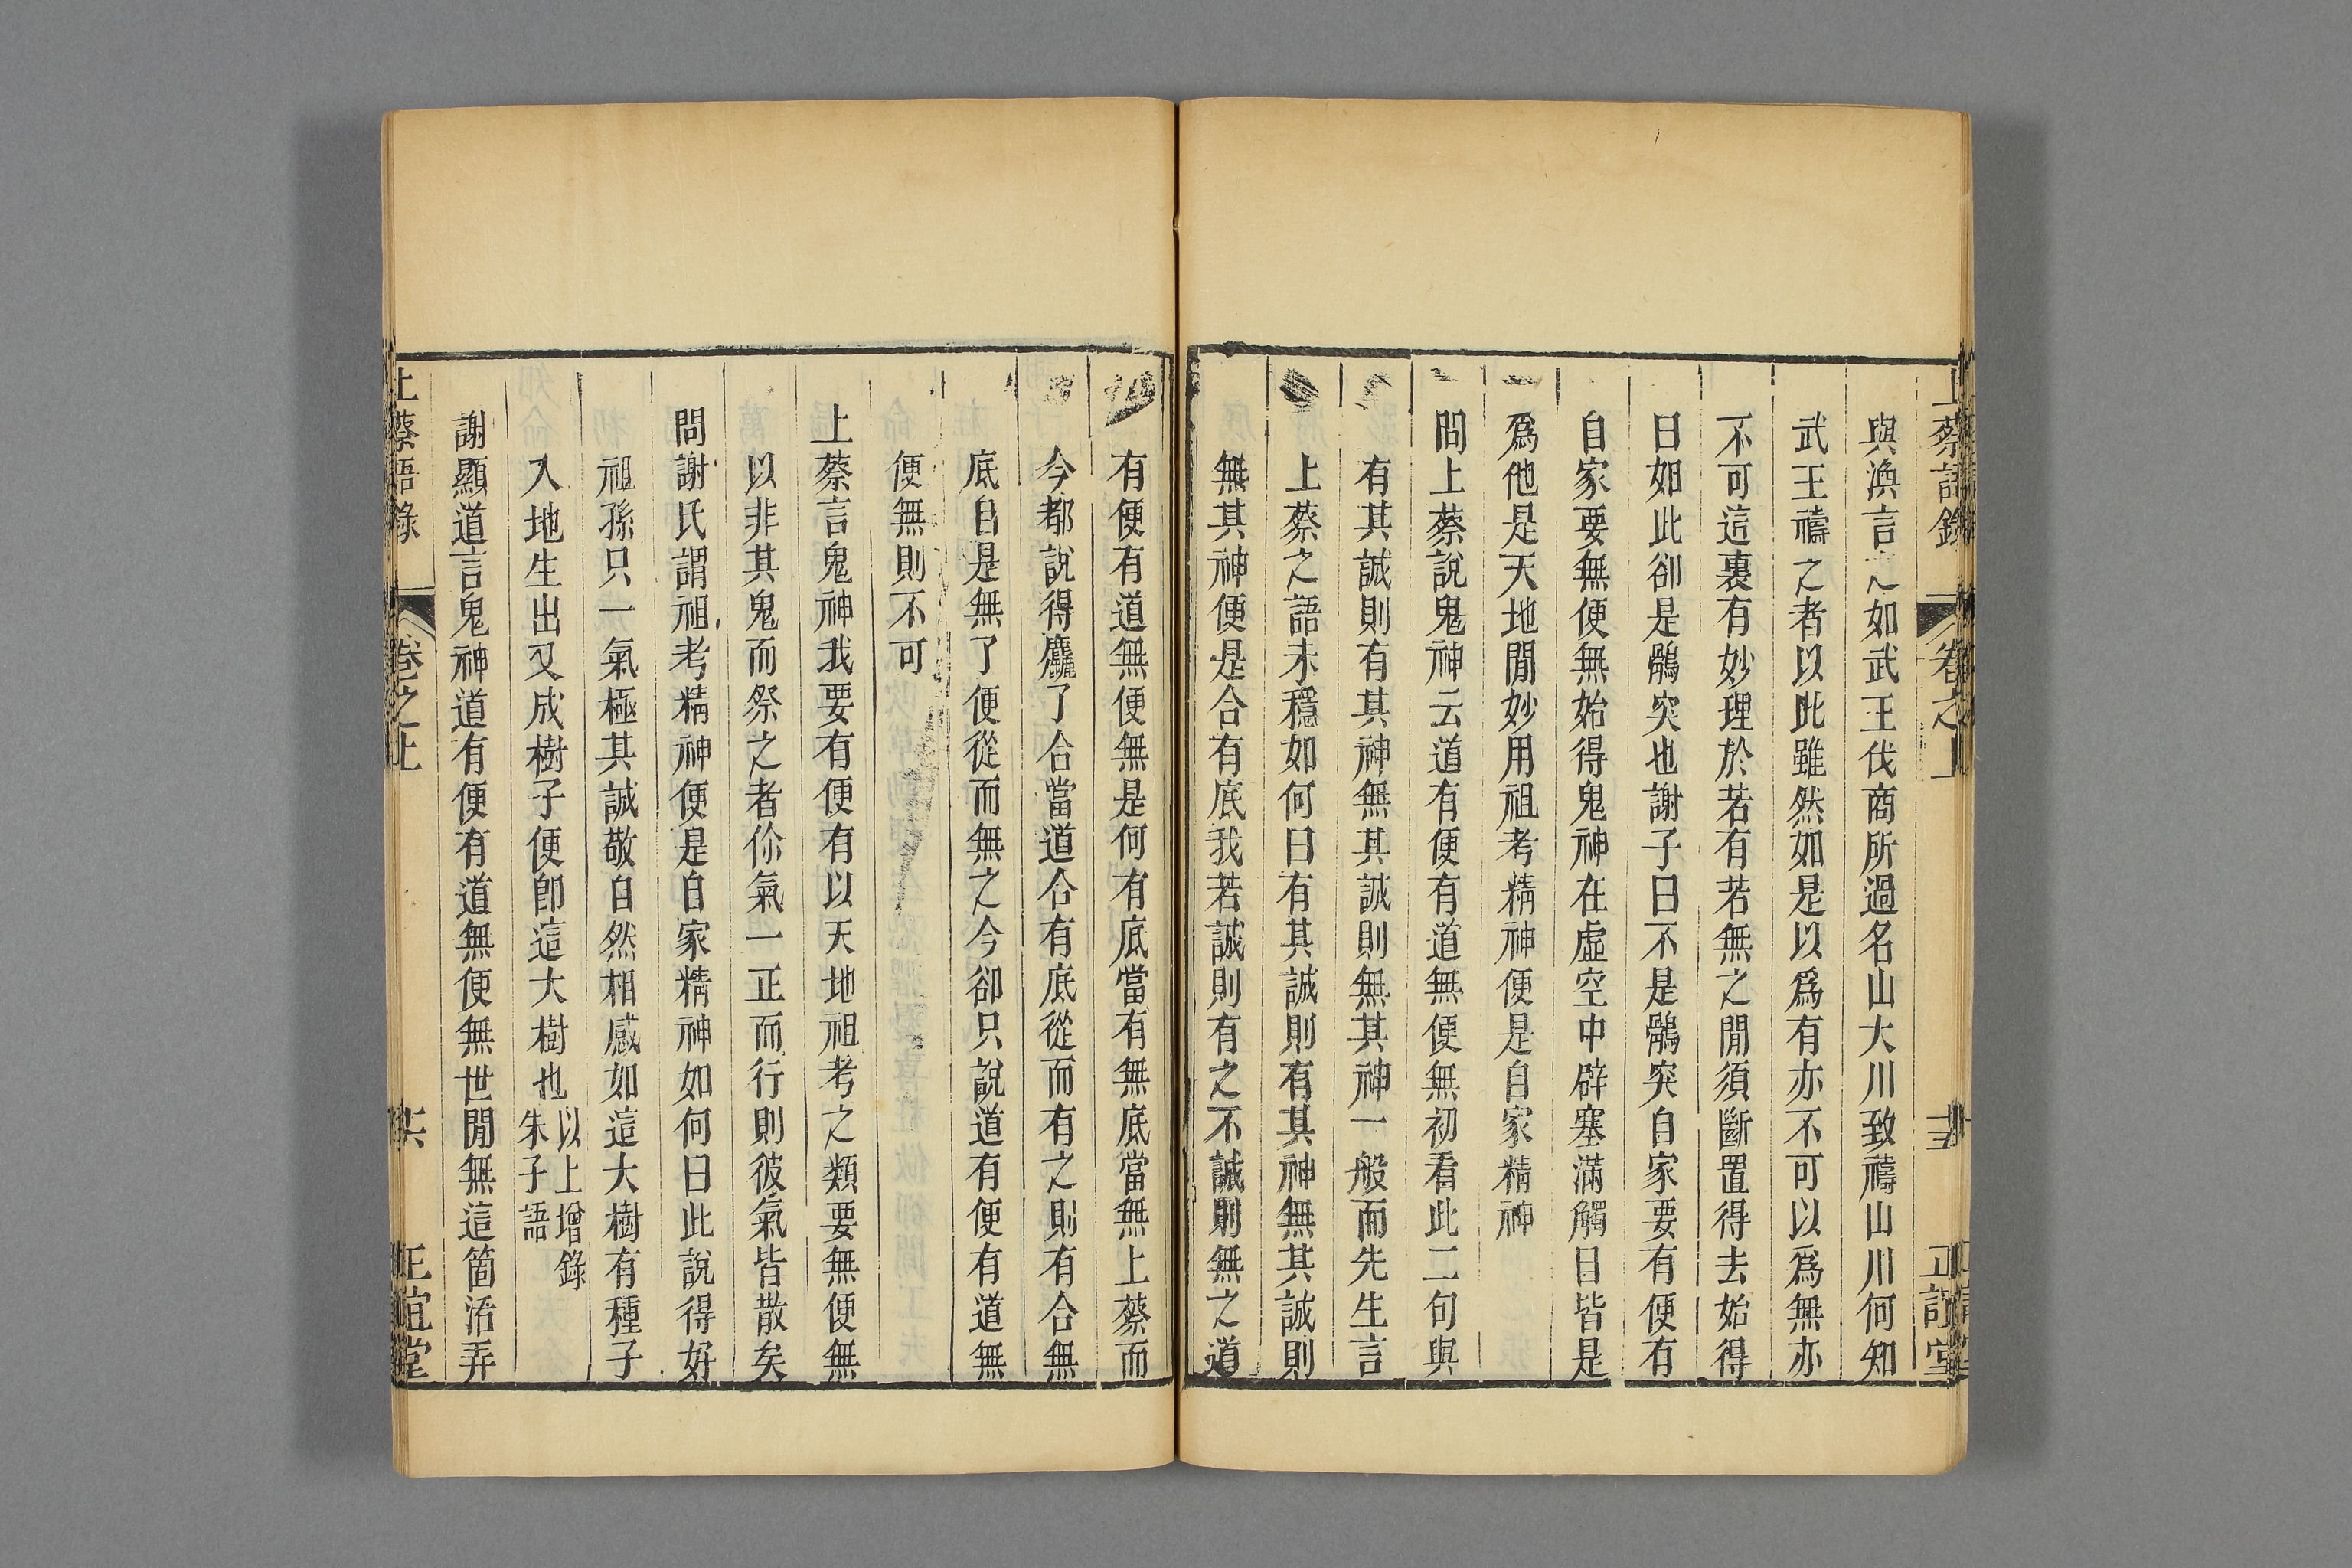 上蔡語錄 卷之上 正誼堂
與渙言之如武王伐商所過名山大川致禱山川何知
武王禱之者以此雖然如是以爲有亦不可以爲無亦
不可這裏有妙理於若有若無之閒須斷置得去始得
曰如此卻是鶻突也謝子曰不是鶻突自家要有便有
自家要無便無始得鬼神在虛空中辟塞滿觸目皆是
爲他是天地閒妙用祖考精神便是自家精神
問上蔡說鬼神云道有便有道無便無初看此二句與
有其誠則有其神無其誠則無其神一般而先生言
上蔡之語未穩如何曰有其誠則有其神無其誠則
無其神便是合有底我若誠則有之不誠則無之道
有便有道無便無是何有底當有無底當無上蔡而
今都說得麤了合當道合有底從而有之則有合無
底自是無了便從而無之今卻只說道有便有道無
便無則不可
上蔡言鬼神我要有便有以天地祖考之類要無便無
以非其鬼而祭之者你氣一正而行則彼氣皆散矣
問謝氏謂祖考精神便是自家精神如何曰此說得好
祖孫只一氣極其誠敬自然相感如這大樹有種子
入地生出又成樹子便卽這大樹也以上增錄
朱子語
謝顯道言鬼神道有便有道無便無世閒無這箇活弄
上蔡語錄 卷之上 正誼堂